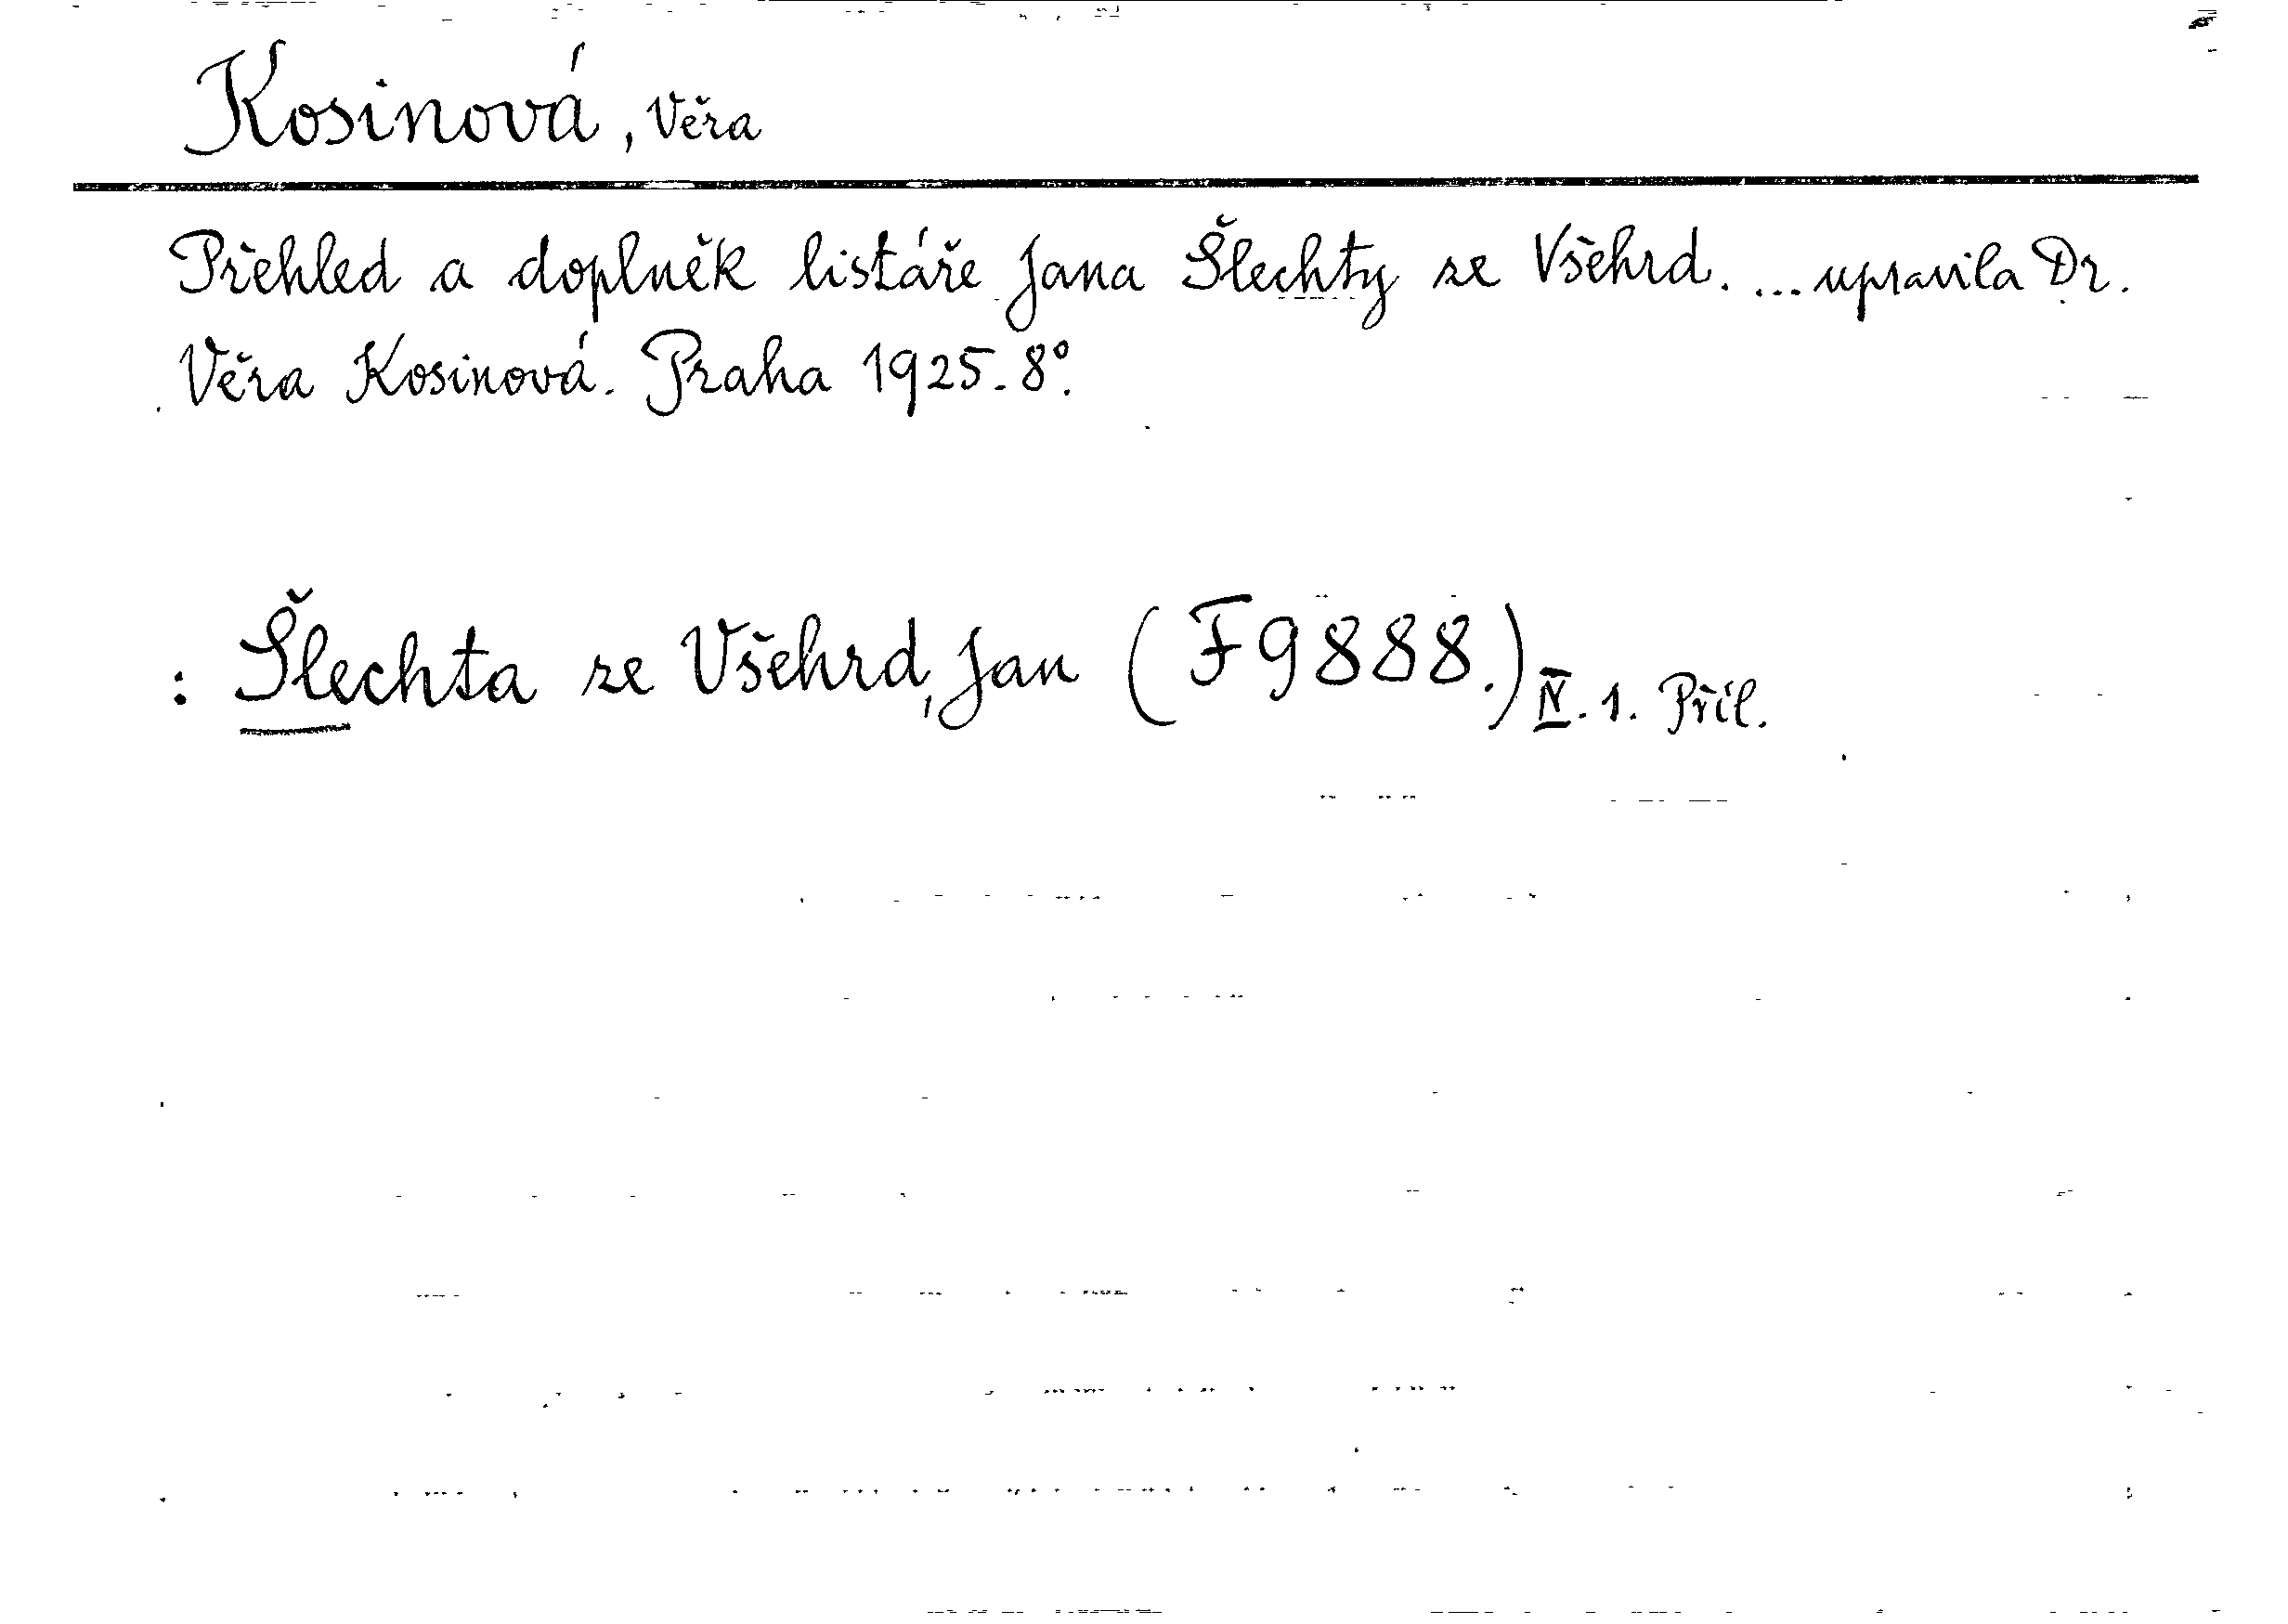 Kosinová, Věra
Přehled a doplněk listáře Jana Šlechty ze Všehrd. ... upravila Dr.
Věra Kosinová. Praha 1925. 8°.
: Šlechta ze Všehrd, Jan (F 9888.) IV. 1. Příl.